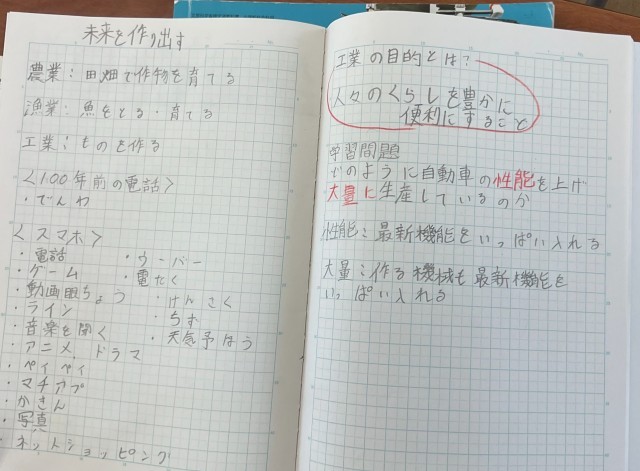 未来を作り出す
農業：田畑で作物を育てる
漁業：魚をとる・育てる
工業：ものを作る
＜100年前の電話＞
・でんわ
＜スマホ＞
・電話
・ゲーム
・動画眼ちょう
・ライン
・音楽を聞く
・アニメ、ドラマ
・ペイペイ
・マチアプ
・かきん
・写真
・ネットショッピング
・ウーバー
・電たく
・けんさく
・ちず
・天気予ほう
工業の目的とは？
人々のくらしを豊かに
便利にすること
学習問題
どのように自動車の性能を上げ
大量に生産しているのか
性能：最新機能をいっぱい入れる
大量：作る機械も最新機能を
いっぱい入れる